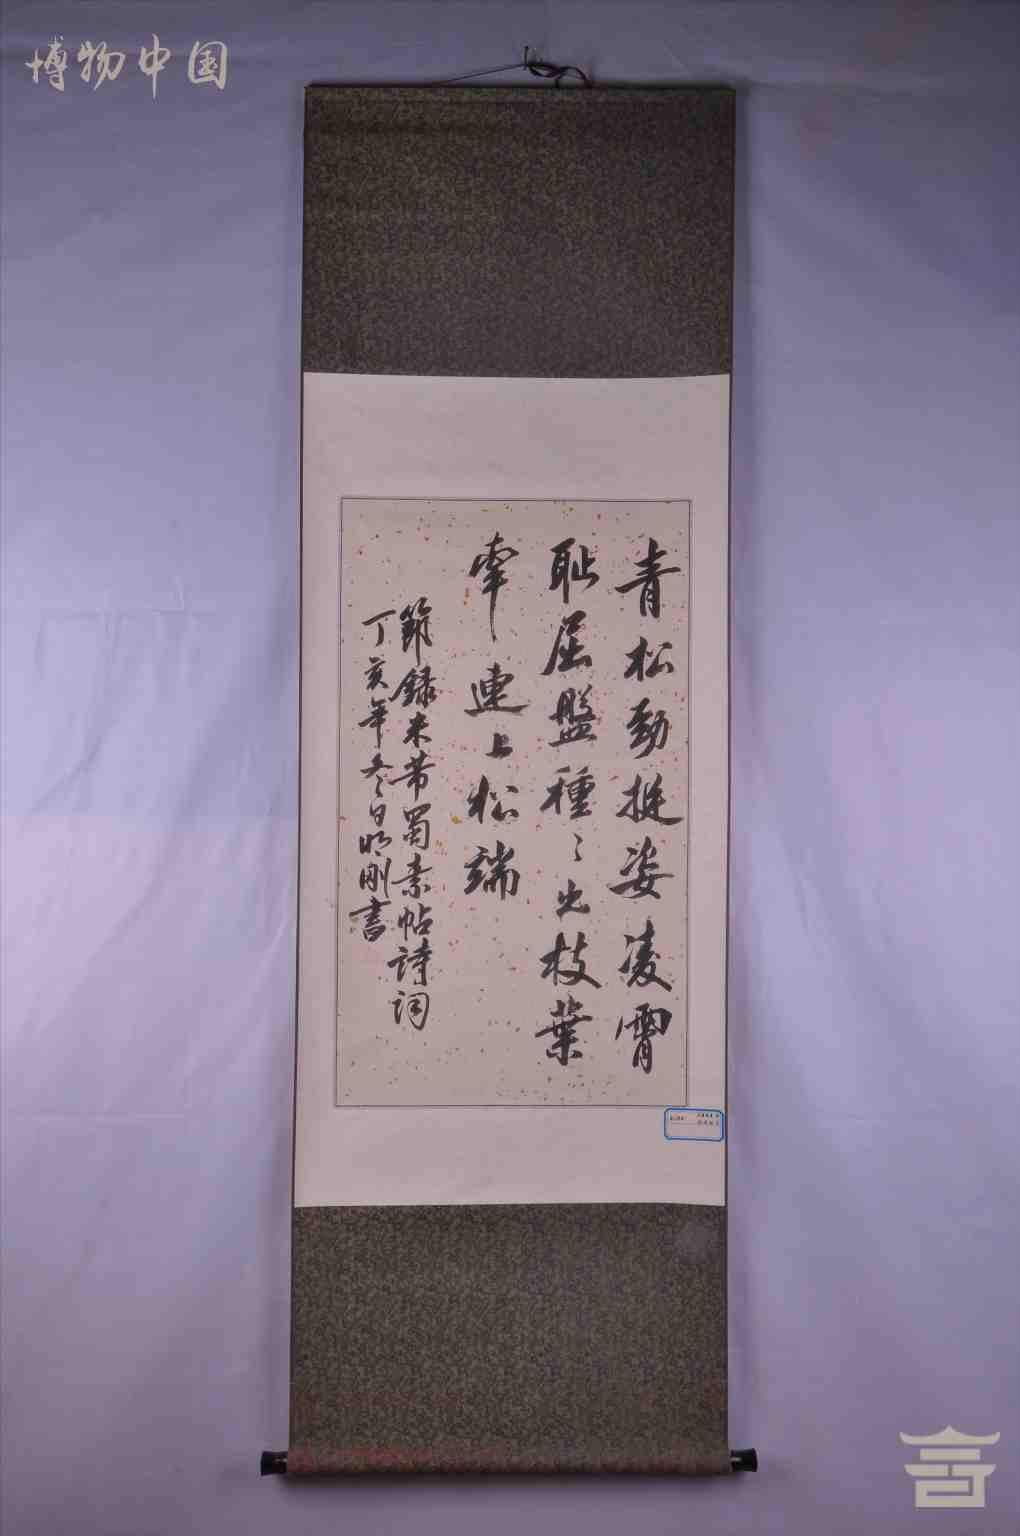 博物中国
青松勁挺姿凌霄
耻屈盤種々出枝葉
牽連上松端
節錄米芾蜀素帖詩詞
丁亥年冬日明剛書